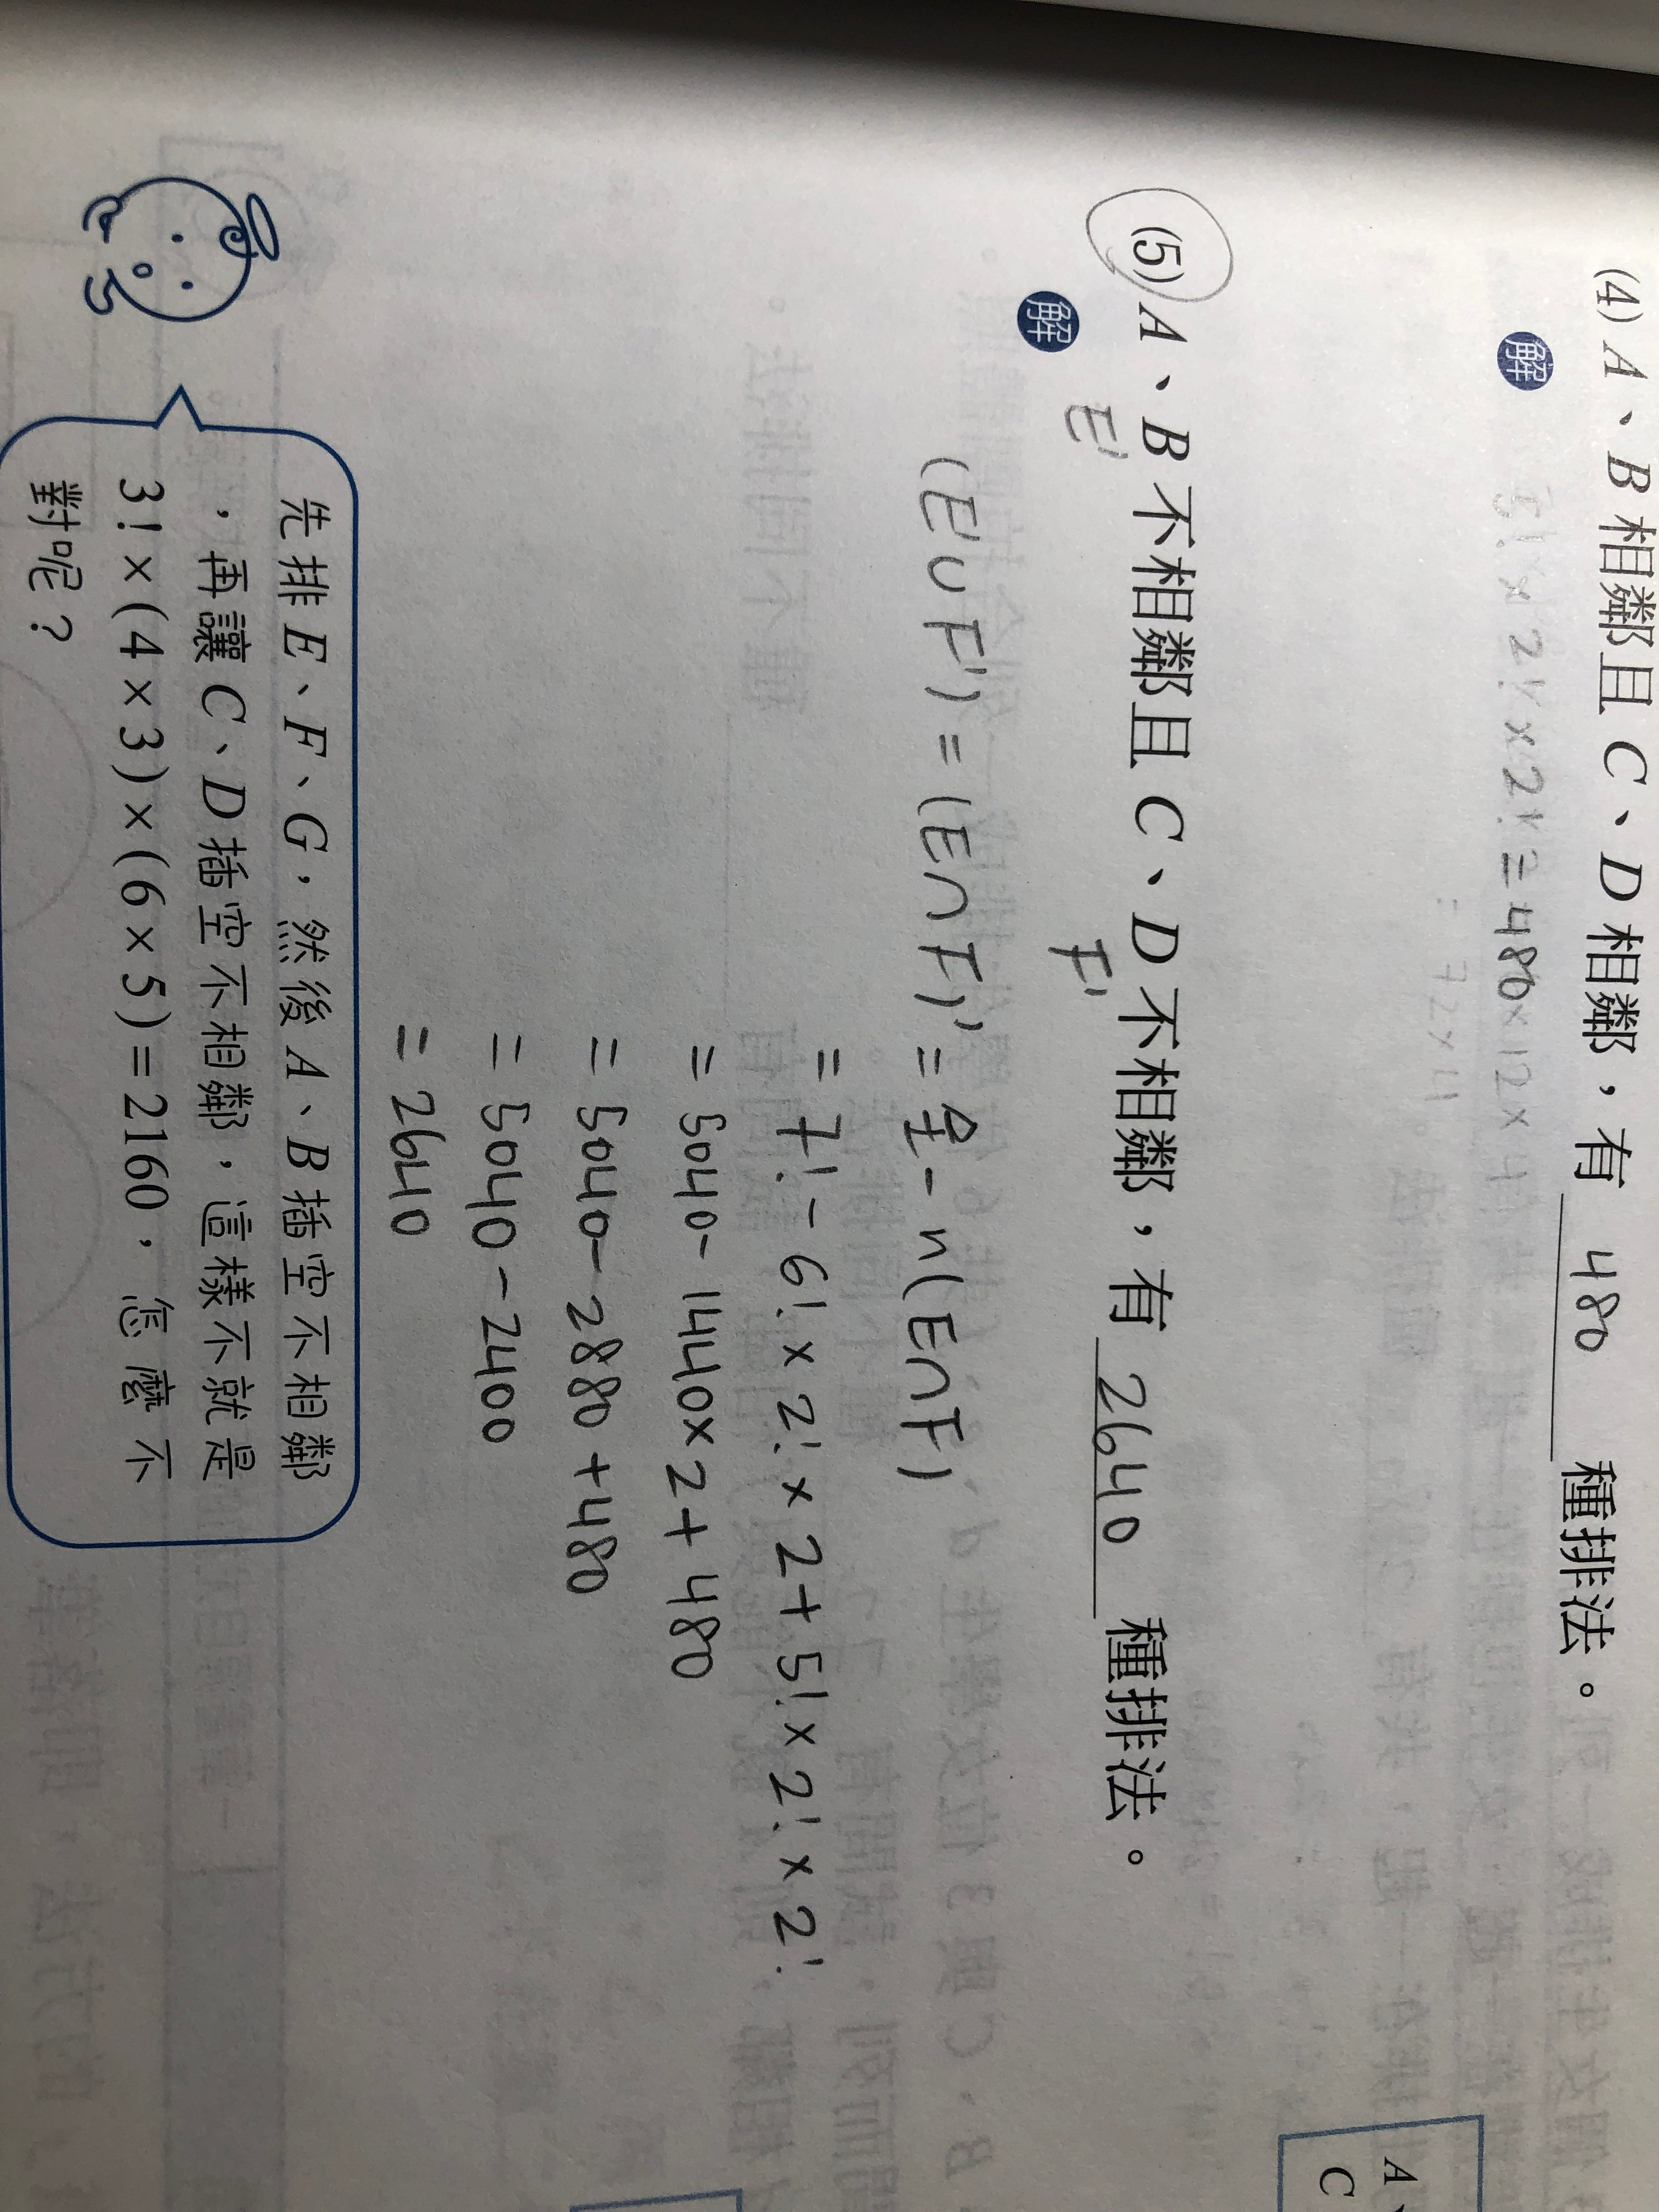 (4) A、B相鄰且C、D相鄰，有 480 種排法。
解
5!×2!×2!=480×12×4
=72×11
(5) A、B不相鄰且C、D不相鄰，有 2640 種排法。
解 E' F'
(E'∪F')=(E∩F)'=全-n(E∩F)
=7!-6!×2!×2+5!×2!×2!
=5040-1440×2+480
=5040-2880+480
=5040-2400
=2640
先排E、F、G，然後A、B插空不相鄰
，再讓C、D插空不相鄰，這樣不就是
3!×(4×3)×(6×5)=2160，怎麼不
對呢？
A、
C